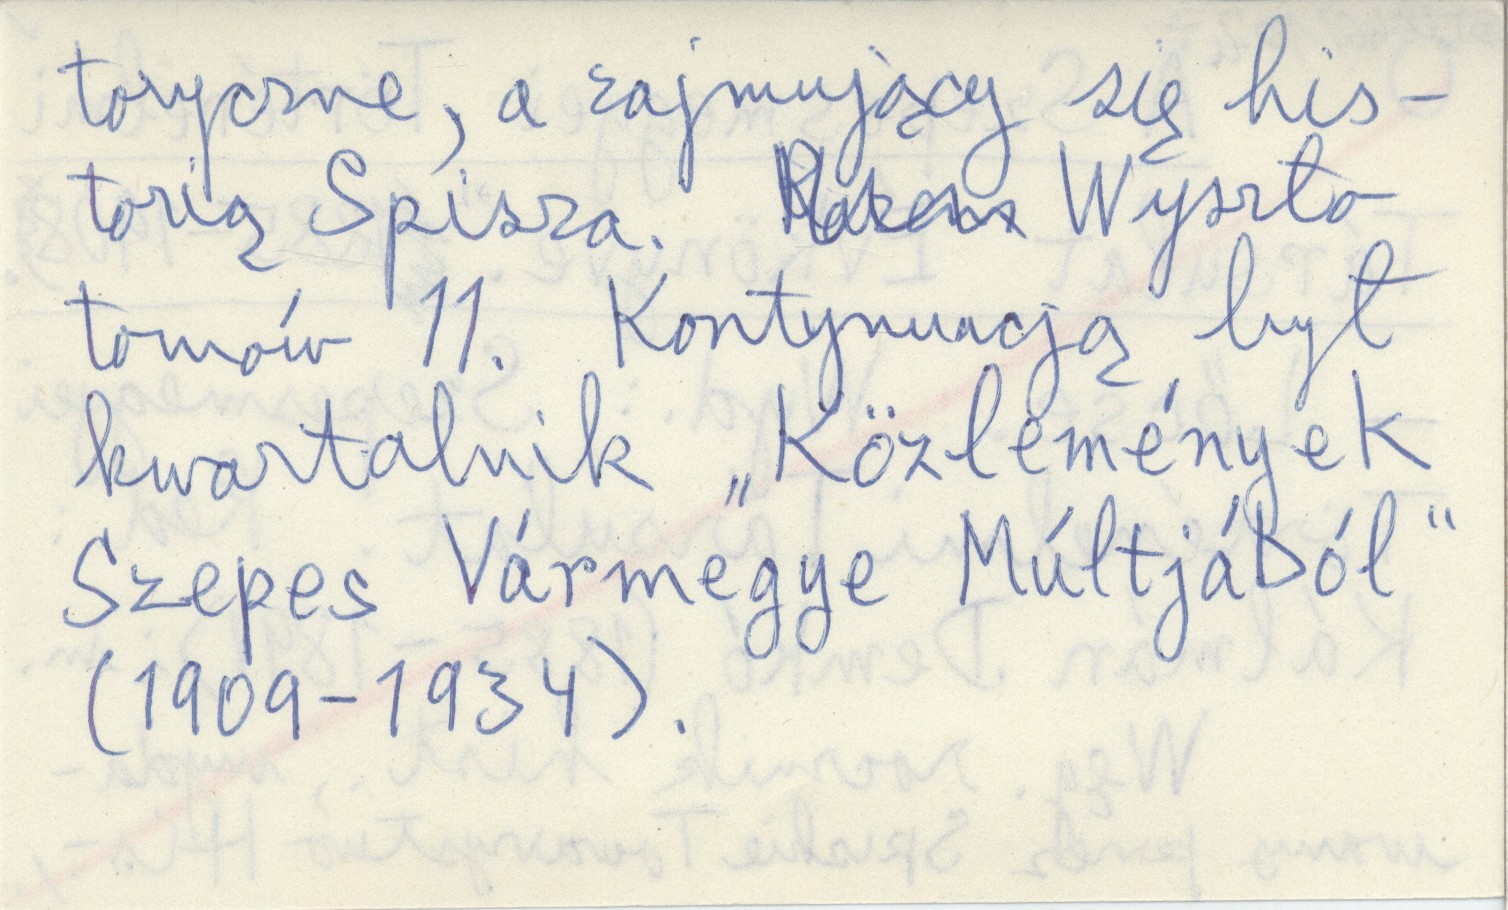 toryczne, a zajmujący się his-
torią Spisza. Wyszło
tomów 11. Kontynuacją był
kwartalnik „Közlemények
Szepes Vármegye Múltjából“
(1909-1934).